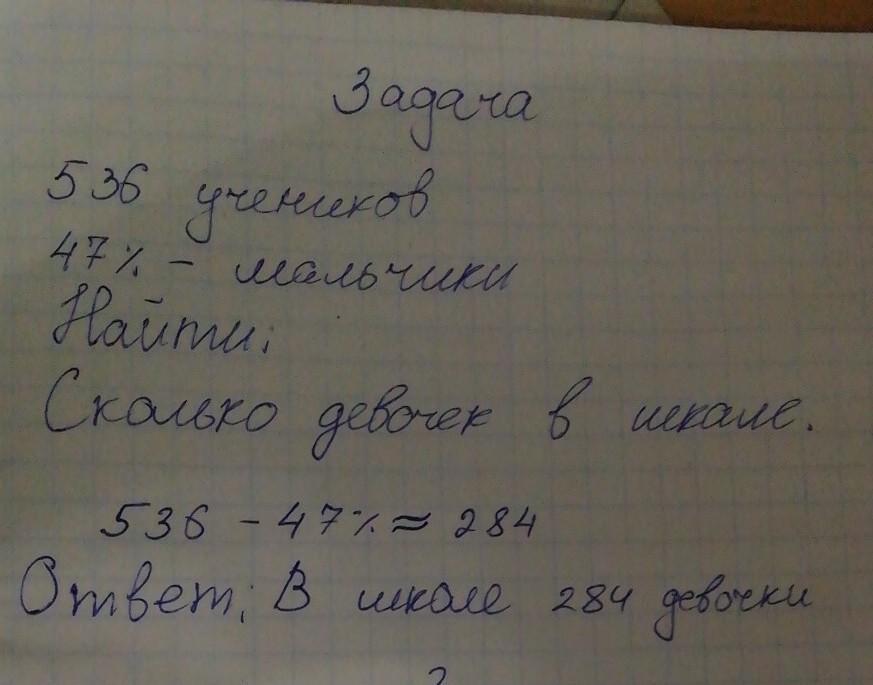 Задача
536 учеников
47% - мальчики
Найти:
Сколько девочек в школе.
536 - 47% ≈ 284
Ответ: В школе 284 девочки